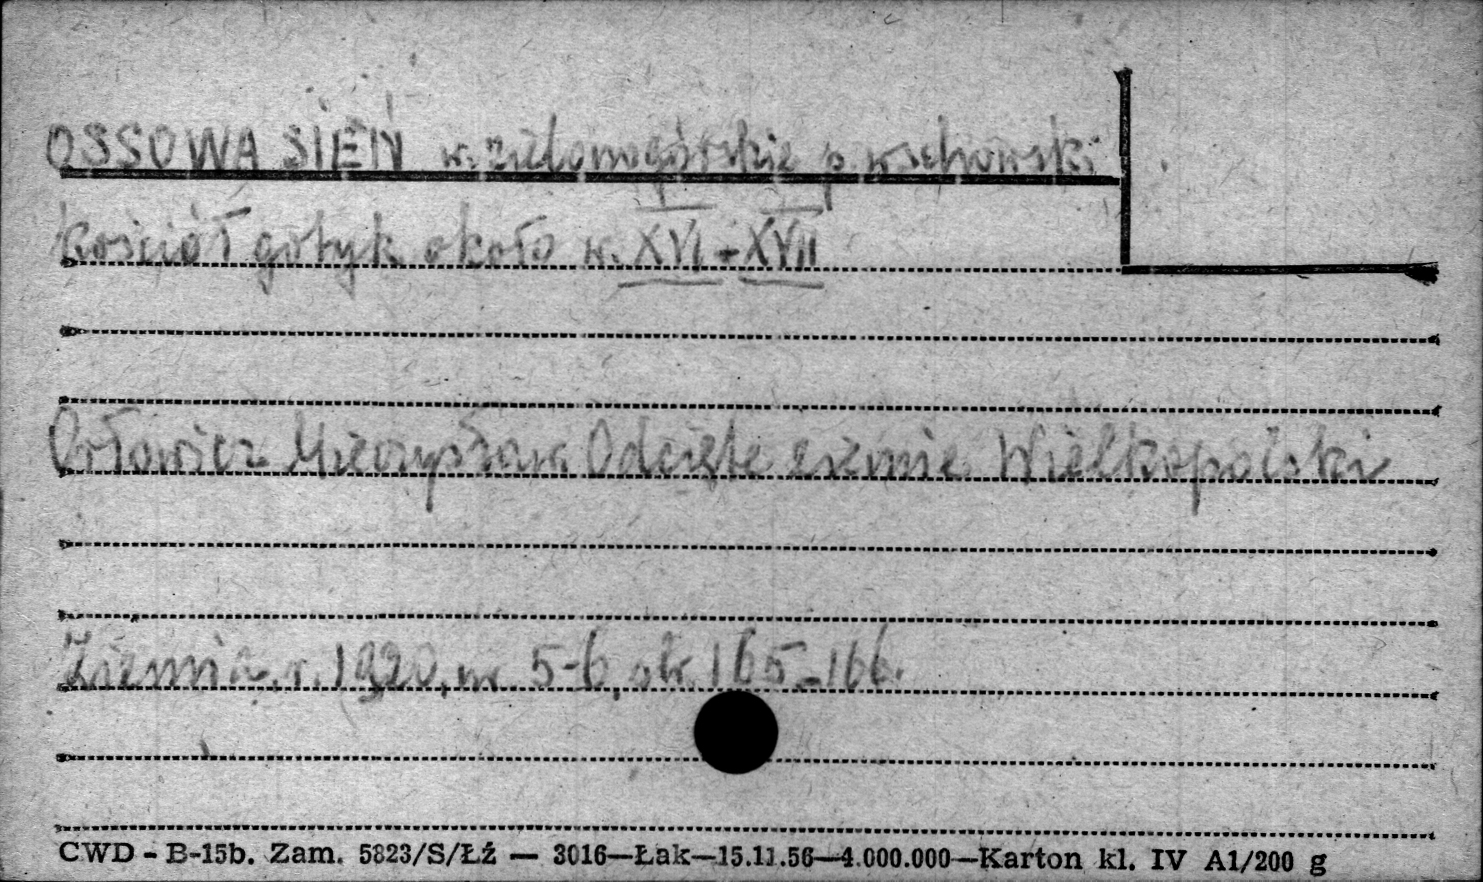 OSSOWA SIEŃ w. zielonogórskie p. wschowski
kościół gotyk około w. XVI-XVII
Orłowicz Mieczysław. Odcięte ziemie Wielkopolski
Ziemia r. 1920, nr 5-6, str. 165-166.
CWD - B-15b. Zam. 5823/S/Łź — 3016—Łak—15.11.56—4.000.000—Karton kl. IV A1/200 g